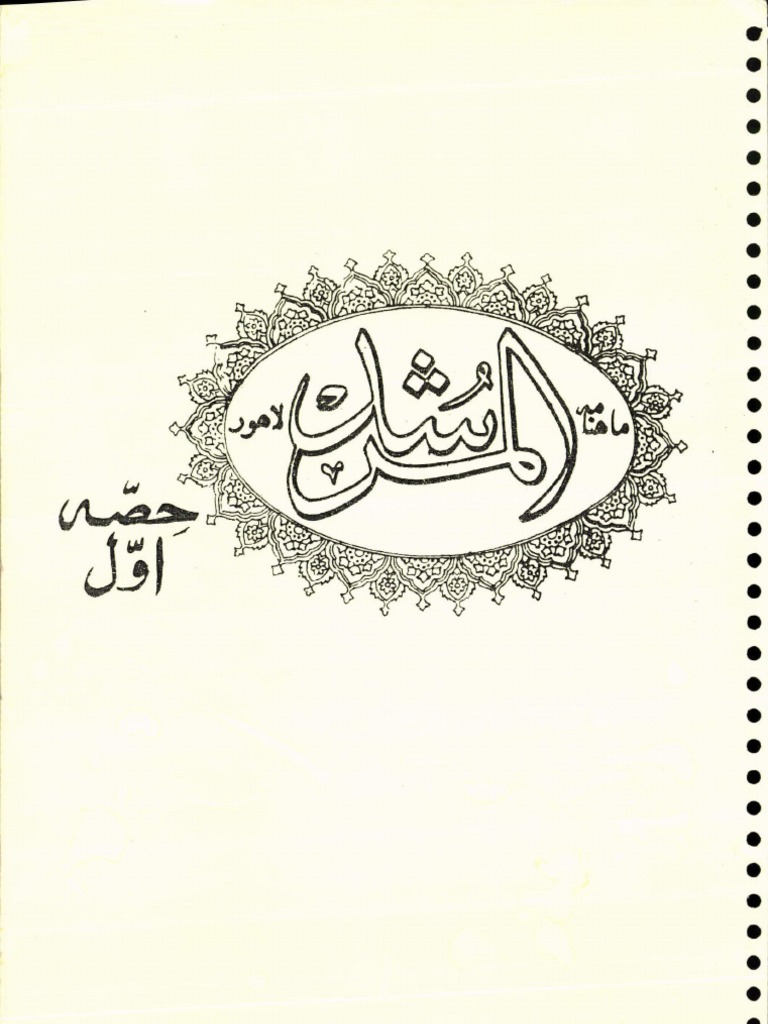 ماھنامہ المرشد لاھور
حِصّہ
اوّل